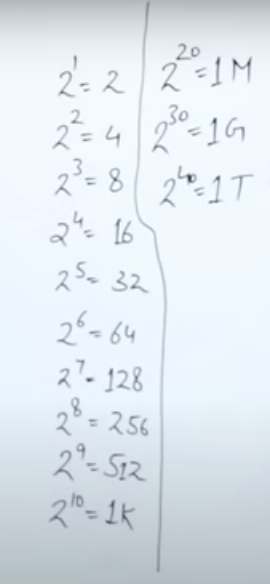 2¹ = 2
2² = 4
2³ = 8
2⁴ = 16
2⁵ = 32
2⁶ = 64
2⁷ = 128
2⁸ = 256
2⁹ = 512
2¹⁰ = 1K
2²⁰ = 1M
2³⁰ = 1G
2⁴⁰ = 1T